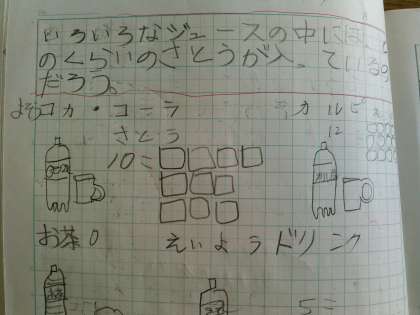 いろいろなジュースの中には、
のくらいのさとうが入っているの
だろう。
よそう コカ・コーラ
さとう
10=
カルピ
12
お茶0
えいようドリンク
5=